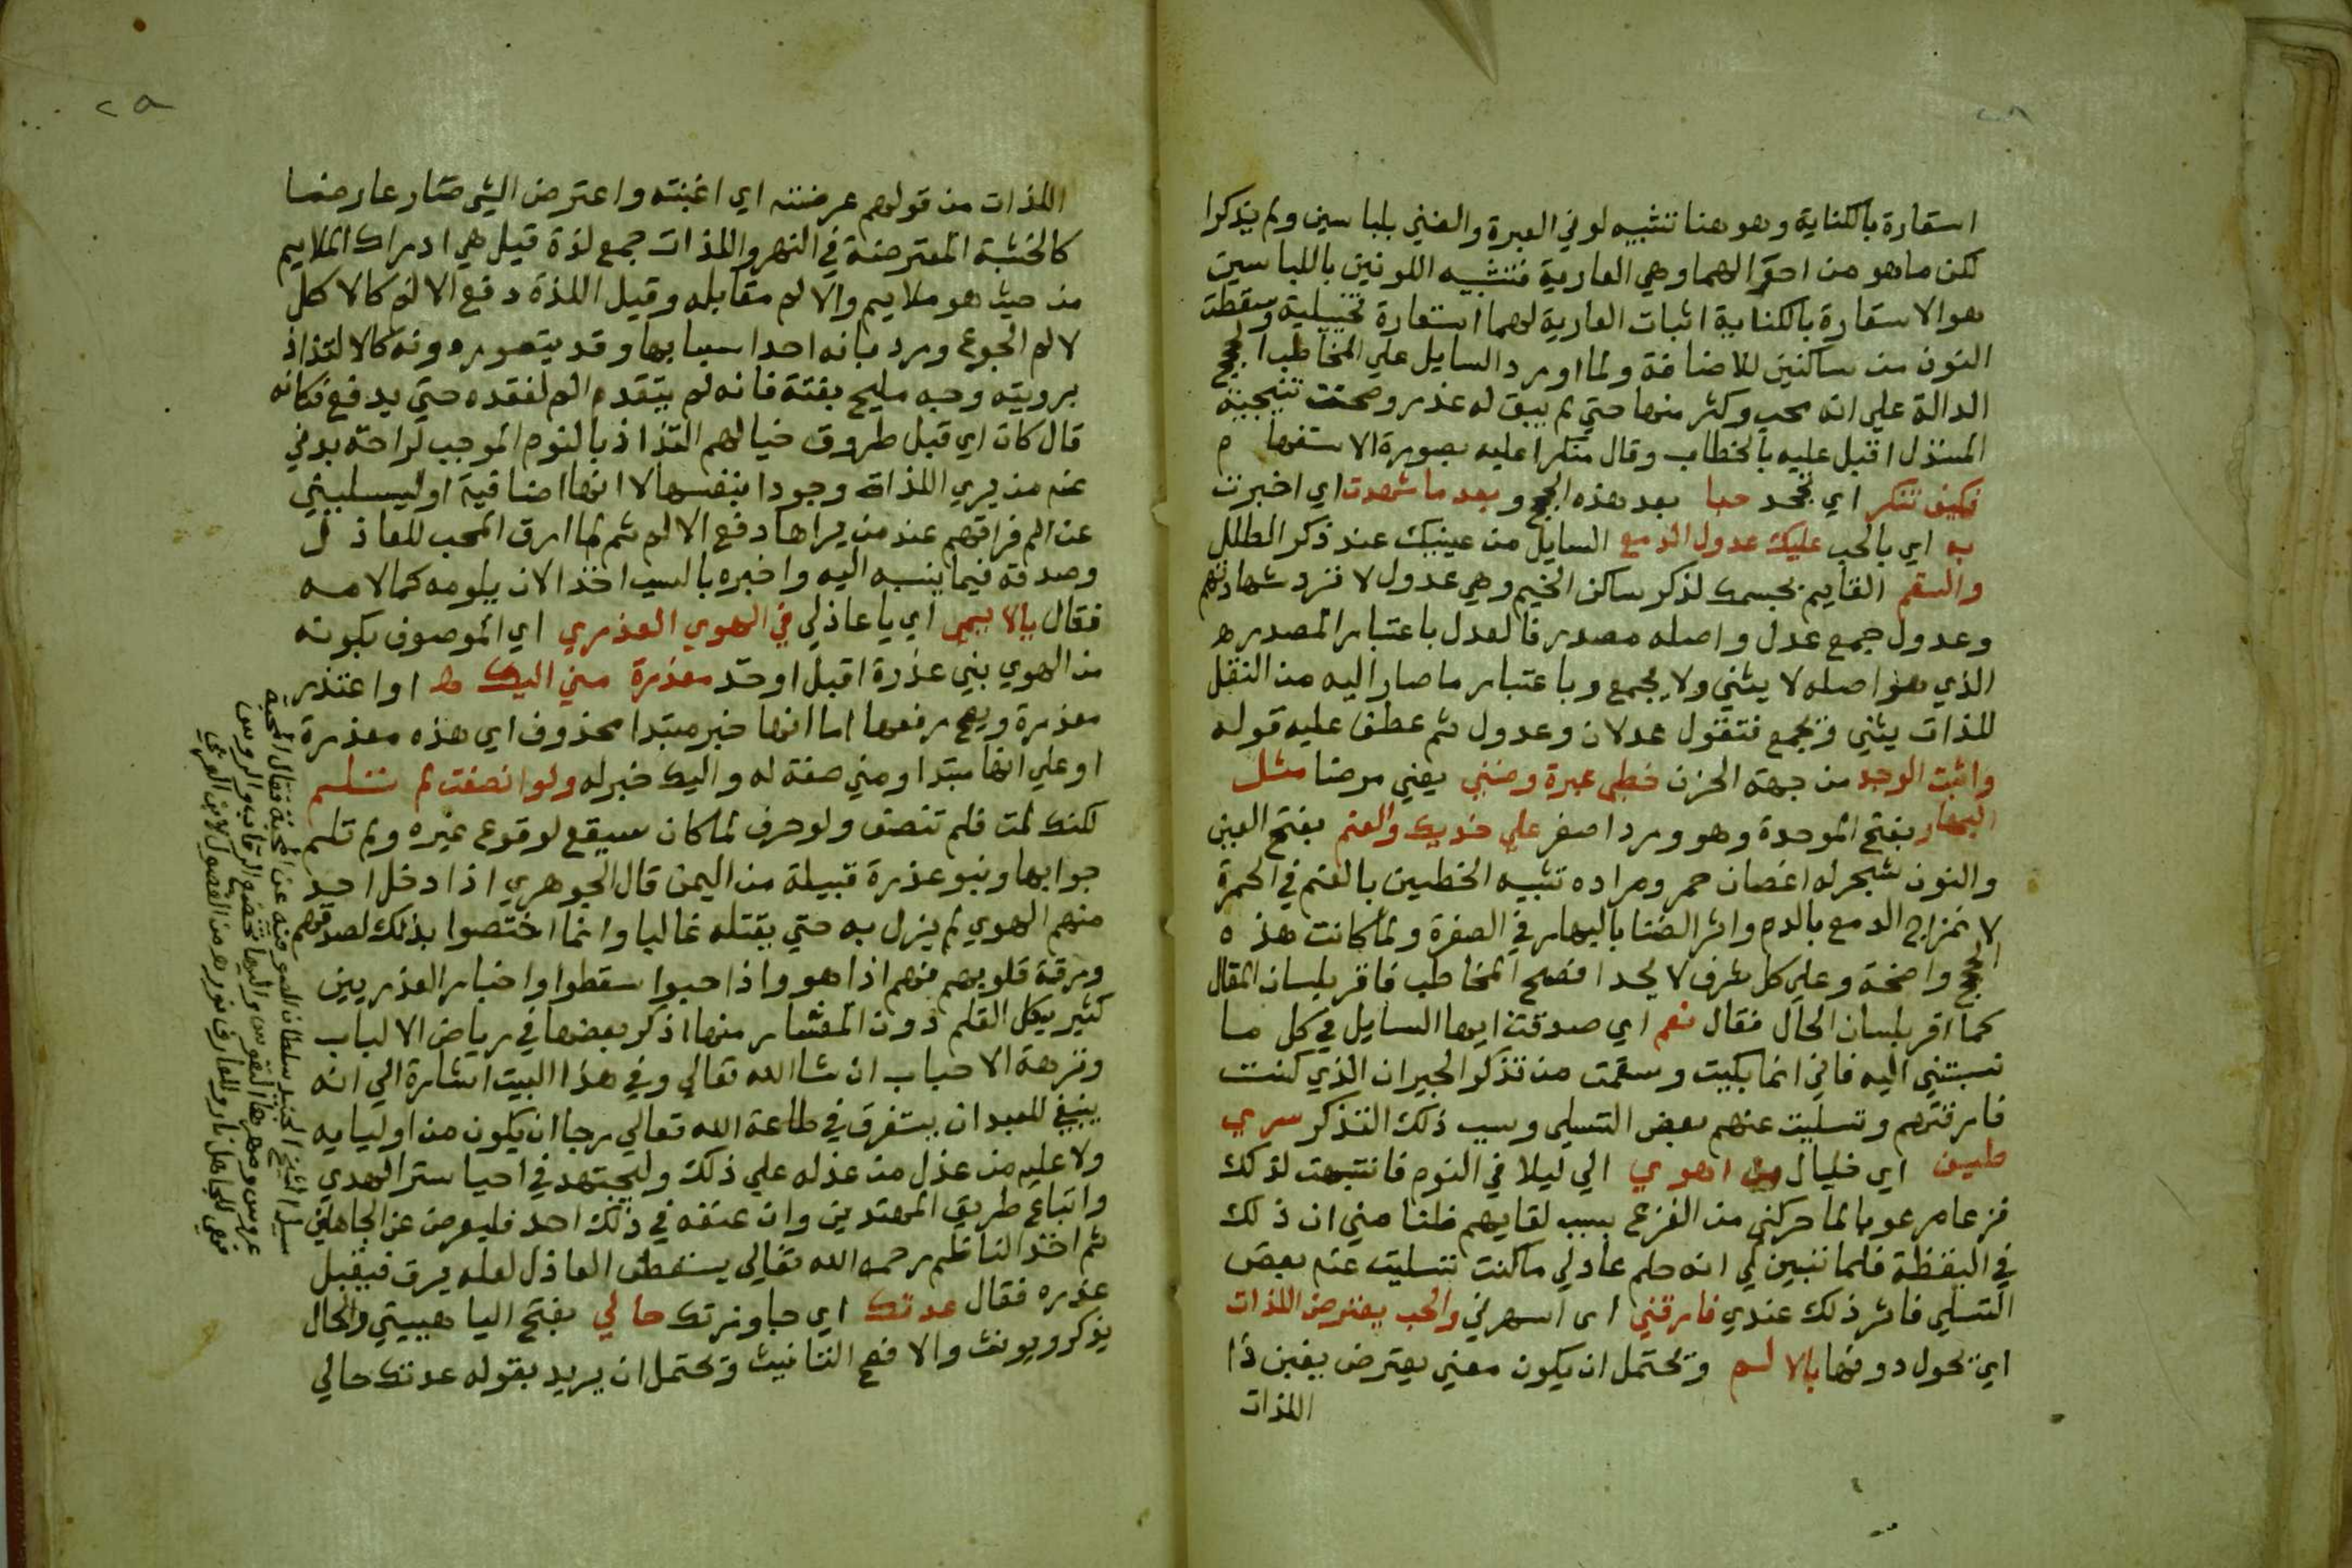 استعارة بالكناية وهو هنا تشبيه لوني العبرة والضني بلباسين ولم يذكرا
لكن ما هو من احوالهما وهي العارية فتشبيه اللونين باللباسين
هو الاستعارة بالكناية اثبات العارية لهما استعارة تخييلية وسقطة
النون من ساكنين للاضافة ولما اورد السايل علي المخاطب الحجج
الدالة علي انه محب وكثر منها حتي لم يبق له عذر وصحت نتيجة
المستدل اقبل عليه بالخطاب وقال منكرا عليه بصورة الاستفهام
فكيف تنكر اي تجحد حبا بعد هذه الحجج وبعد ما شهدت اي اخبرت
به اي بالحب عليك عدول الدمع السايل من عينيك عند ذكر الطلل
والسقم القايم بجسمك لذكر ساكن الخيم وهي عدول لا ترد شهادتهم
وعدول جمع عدل واصله مصدر فالعدل باعتبار المصدر
الذي هو اصله لا يثني ولا يجمع وباعتبار ما صار اليه من النقل
للذات يثني ويجمع فتقول عدلان وعدول ثم عطف عليه قوله
واثبت الوجد من جهة الحزن خطي عبرة وضني يعني مرضا مثل
البهار بفتح الموحدة وهو ورد اصفر علي خديك والعنم بفتح العين
والنون شجر له اغصان حمر ومراده تشبيه الخطين بالعنم في الحمرة
لامتزاج الدمع بالدم واثر الضنا بالبهار في الصفرة ولما كانت هذه
الحجج واضحة وعلي كل شرف لا يجد افصح المخاطب فاقر بلسان المقال
كما اقر بلسان الحال فقال نعم اي صدقت ايها السايل في كل ما
نسبتني اليه فاني انما بكيت وسقمت من تذكر الجيران الذي كنت
فارقتهم وتسليت عنهم بعض التسلي وسبب ذلك التذكر سري
طيف اي خيال من اهوي الي ليلا في النوم فانتبهت لذلك
فزعا مرعوبا لما حركني من الفزع بسبب لقايهم ظنا مني ان ذلك
في اليقظة فلما تبين لي انه حلم عاد لي ما كنت تسليت عنه بعض
التسلي فاثر ذلك عندي فارقني اي اسهرني والحب يعترض اللذات
اي تحول دونها بالالم ويحتمل ان يكون معني يعترض بغين ذا
اللذات
٢٥
اللذات من قولهم عرضته اي اغبنته واعترض الشي صار عارضا
كالخشبة المعترضة في النهر واللذات جمع لذة قيل هي ادراك الملايم
من حيث هو ملايم والالم مقابله وقيل اللذة دفع الالم كالاكل
لالم الجوع ورد بانه احد اسبابها وقد يتصور دونه كالالتذاذ
برويته وجه مليح بغتة فانه لم يتقدم الم لفقده حتي يدفع فكانه
قال كان اي قبل طروق خيالهم التذاذ بالنوم الموجب لراحة بدني
عنه من يري اللذات وجودا بنفسها لا انها اضافية او ليسلبني
عن الم فراقهم عند من يراها دفع الالم ثم لما ارق المحب للعاذل
وصدقه فيما ينسبه اليه واخبره بالسبب اخذ الان يلومه كما لامه
فقال يا لايمي اي يا عاذلي في الهوي العذري اي الموصوف بكونه
من الهوي بني عذرة اقبل او خذ معذرة مني اليك او اعتذر
معذرة ويصح رفعها اما انها خبر مبتدا محذوف اي هذه معذرة
او علي انها مبتدا ومني صفة له واليك خبر له ولو انصفت لم تلم
لكنك لمت فلم تنصف ولو حرف لما كان سيقع لوقوع غيره ولم تلم
جوابها وبنو عذرة قبيلة من اليمن قال الجوهري اذا دخل احد
منهم الهوي لم يزل به حتي يقتله غالبا وانما اختصوا بذلك لصدقهم
ورقة قلوبهم فهم اذا هووا ذا حبوا سقطوا واخبار العذريين
كثير يكل القلم دون المعشار منها اذكر بعضها في رياض الالباب
ونزهة الاحباب ان شا الله تعالي وفي هذا البيت اشارة الي انه
ينبغي للعبد ان يستغرق في طاعة الله تعالي رجا ان يكون من اوليايه
ولا عليه من عذل من عذله علي ذلك وليجتهد في احيا ستر الهدي
واتباع طريق المهتدين وان عنفه في ذلك احد فليعرض عن الجاهلين
ثم اخذ الناظم رحمه الله تعالي يستعطف العاذل لعله يرق فيقبل
عذره فقال عدتك اي جاوزتك حالي بفتح اليا هيبتي والحال
يذكر ويونث والافصح التانيث ويحتمل ان يريد بقوله عدتك حالي
سيل الشيخ الجنيد سلطان الصوفيه عن المحبة فقال المحبه
عروس ومهرها النفوس واليها تخضع الرقاب والروس
فهي للجاهل نار وللعارف نور من الفصول لابن العربي